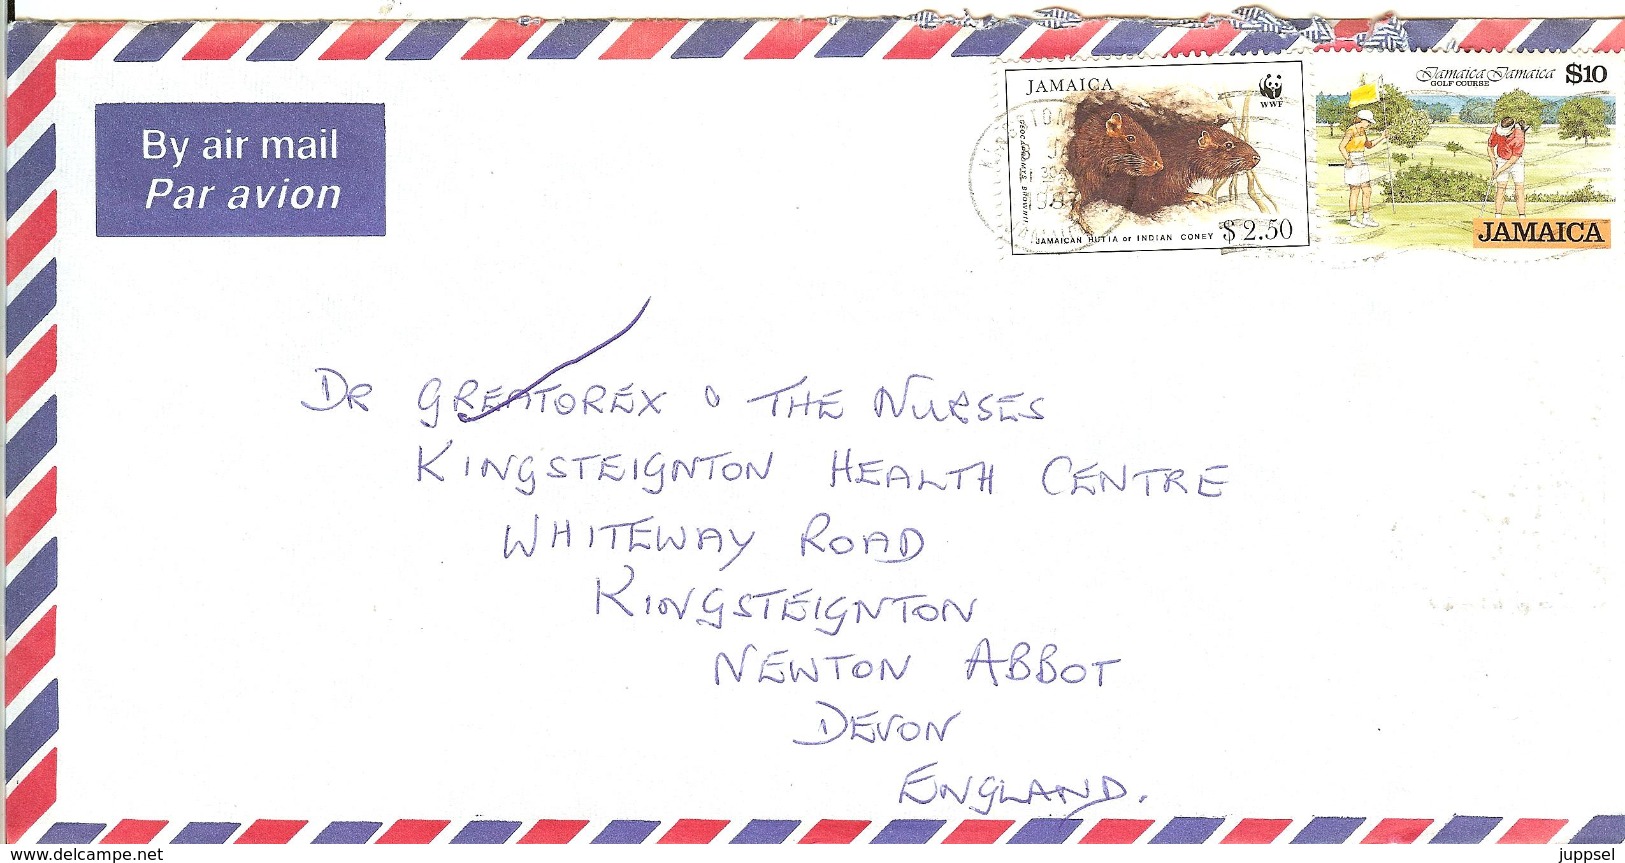 By air mail
Par avion
JAMAICA
WWF
GEOCAPROMYS BROWNII
JAMAICAN HUTIA or INDIAN CONEY $2.50
Jamaica Jamaica $10
GOLF COURSE
JAMAICA
DR GREATOREX & THE NURSES
KINGSTEIGNTON HEALTH CENTRE
WHITEWAY ROAD
KINGSTEIGNTON
NEWTON ABBOT
DEVON
ENGLAND.
www.delcampe.net
juppsel